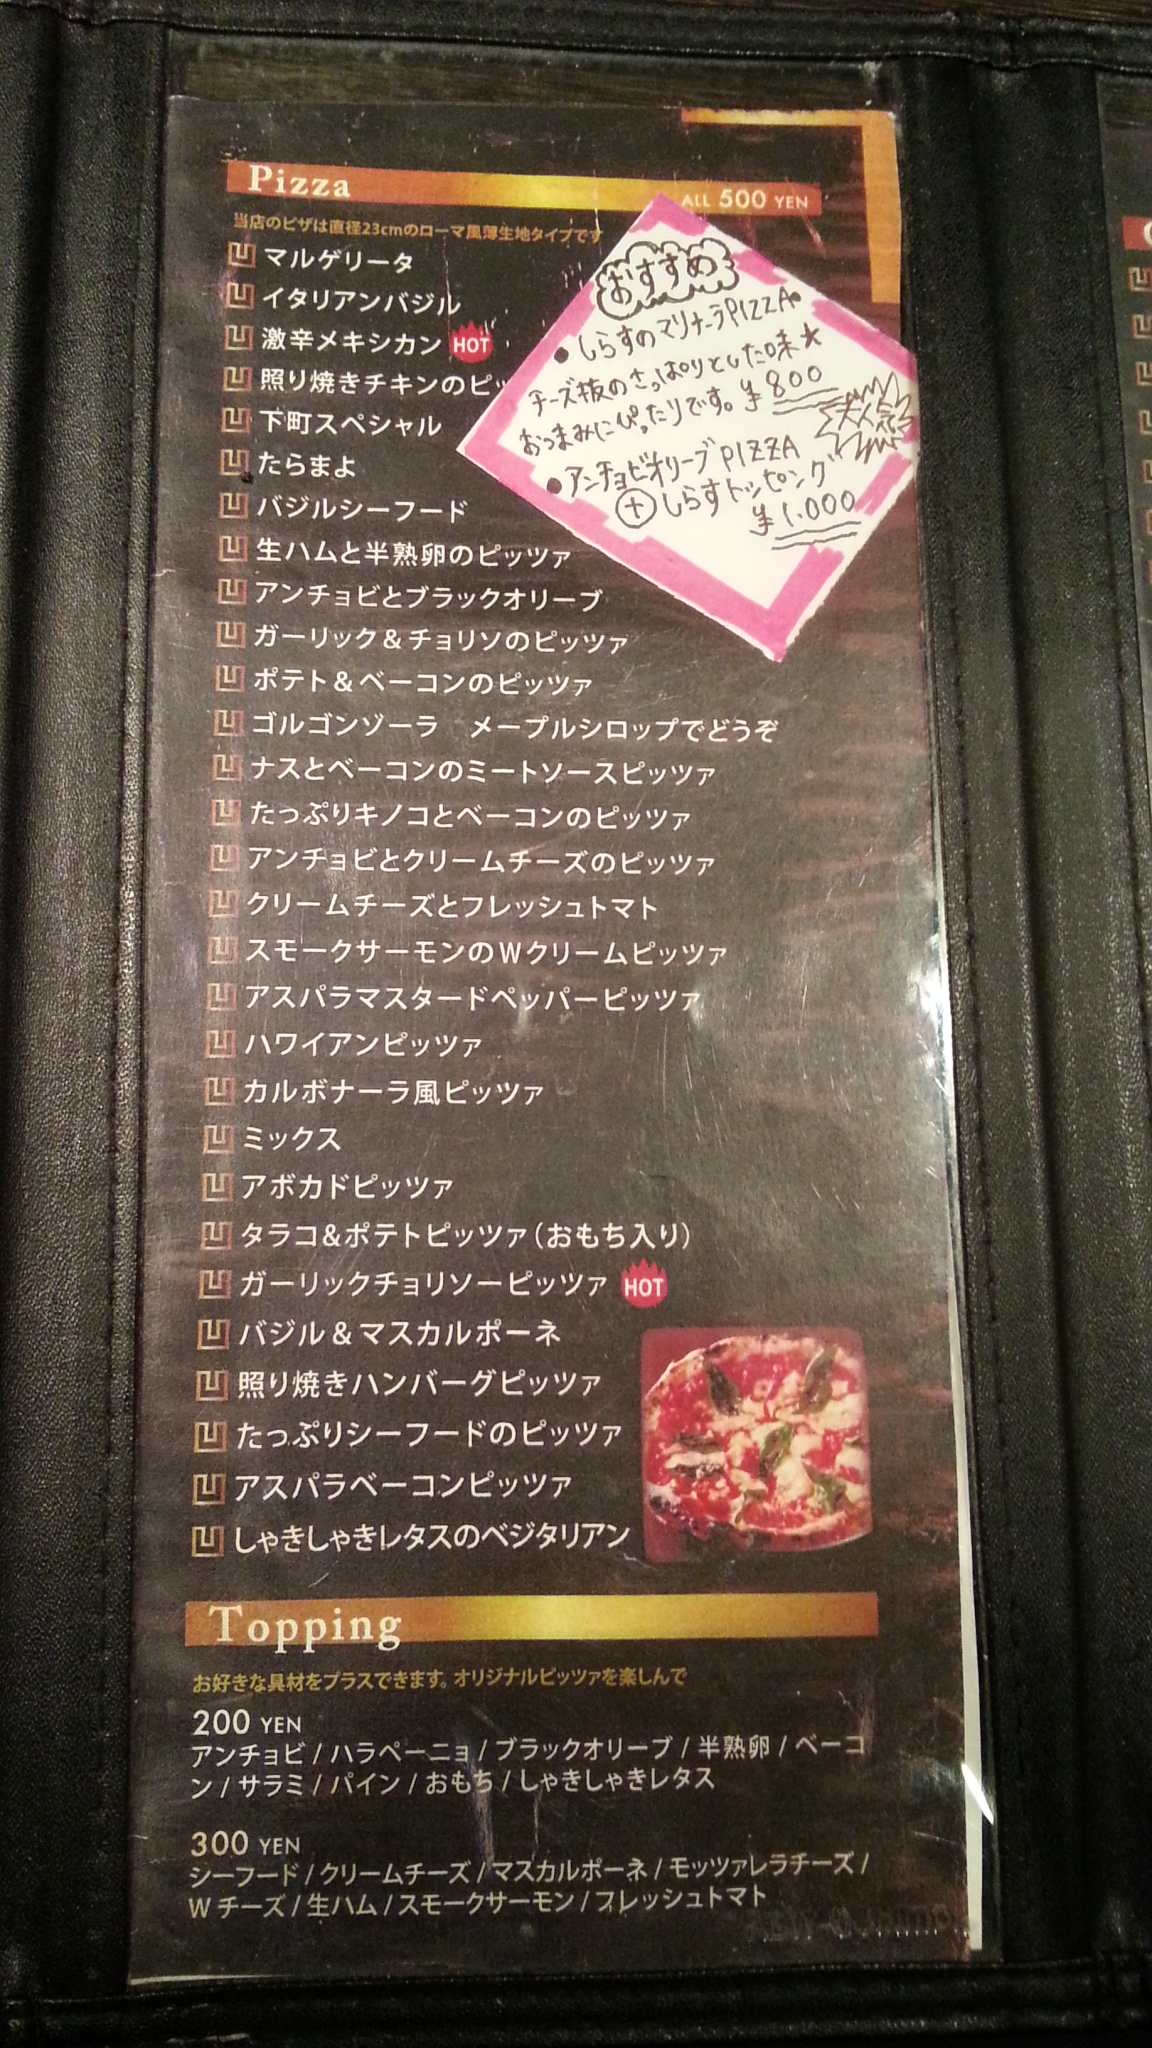 Pizza
ALL 500 YEN
当店のピザは直径23cmのローマ風薄生地タイプです
マルゲリータ
イタリアンバジル
激辛メキシカン HOT
照り焼きチキンのピッ
下町スペシャル
たらまよ
バジルシーフード
生ハムと半熟卵のピッツァ
アンチョビとブラックオリーブ
ガーリック&チョリソのピッツァ
ポテト&ベーコンのピッツァ
ゴルゴンゾーラ　メープルシロップでどうぞ
ナスとベーコンのミートソースピッツァ
たっぷりキノコとベーコンのピッツァ
アンチョビとクリームチーズのピッツァ
クリームチーズとフレッシュトマト
スモークサーモンのWクリームピッツァ
アスパラマスタードペッパーピッツァ
ハワイアンピッツァ
カルボナーラ風ピッツァ
ミックス
アボカドピッツァ
タラコ&ポテトピッツァ(おもち入り)
ガーリックチョリソーピッツァ HOT
バジル&マスカルポーネ
照り焼きハンバーグピッツァ
たっぷりシーフードのピッツァ
アスパラベーコンピッツァ
しゃきしゃきレタスのベジタリアン
おすすめ
●しらすのマリナーラPIZZA●
チーズ抜のさっぱりとした味★
おつまみにぴったりです。¥800
大人気
●アンチョビオリーブPIZZA
⊕しらすトッピング
¥1.000
Topping
お好きな具材をプラスできます。オリジナルピッツァを楽しんで
200 YEN
アンチョビ / ハラペーニョ / ブラックオリーブ / 半熟卵 / ベーコ
ン / サラミ / パイン / おもち / しゃきしゃきレタス
300 YEN
シーフード / クリームチーズ / マスカルポーネ / モッツァレラチーズ /
Wチーズ / 生ハム / スモークサーモン / フレッシュトマト